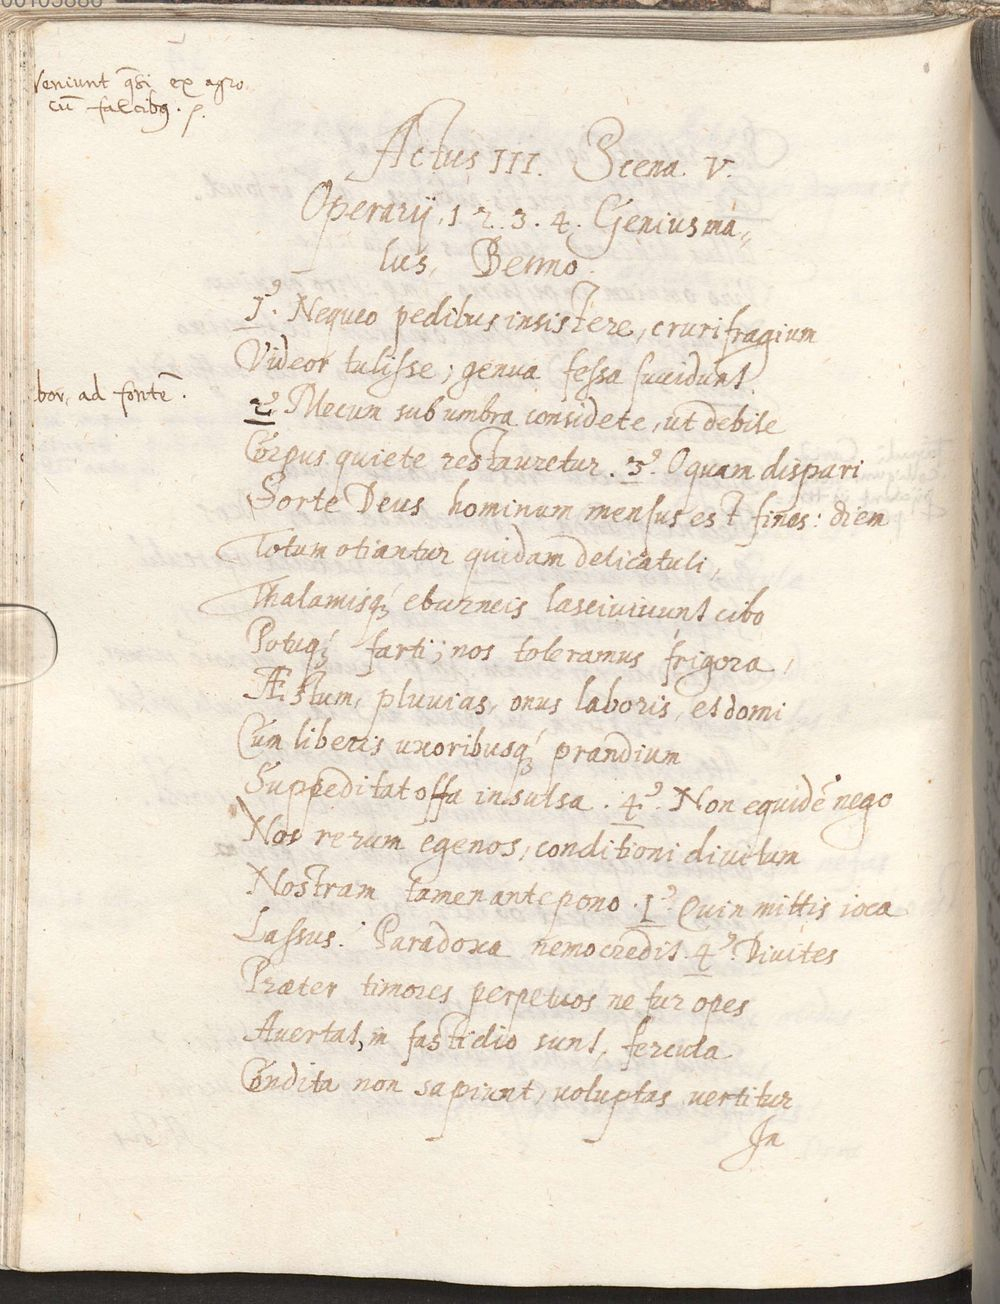 Veniunt q̃si ex agro
cū falcibꝯ.
Actus III. Scena. V.
Operarij. 1 2. 3. 4. Genius ma„
lus, Benno.
1ꝯ. Nequeo pedibus insistere, crurifragium
Videor tulisse; genua fessa succidunt
bor, ad fontē.
2ꝯ Mecum sub umbra considete, ut debile
Corpus quiete restauretur. 3ꝯ. O quam dispari
Sorte Deus hominum mensus est fines: diem
Totum otiantur quidam delicatuli,
Thalamisq́ꝫ eburneis lasciviunt cibo
Potuq́ꝫ farti; nos toleramus frigora,
Æstum, pluvias, onus laboris, et domi
Cum liberis uxoribusq́ꝫ prandium
Suppeditat offa insulsa. 4ꝯ. Non equidē nego
Nos rerum egenos, conditioni divitum
Nostram tamen antepono. 1ꝯ. Quin mittis ioca
Lassus. Paradoxa nemo credit. 4ꝯ. Divites
Præter timores perpetuos ne fur opes
Avertat, in fastidio sunt, fercula
Condita non sapiunt, voluptas vertitur
In